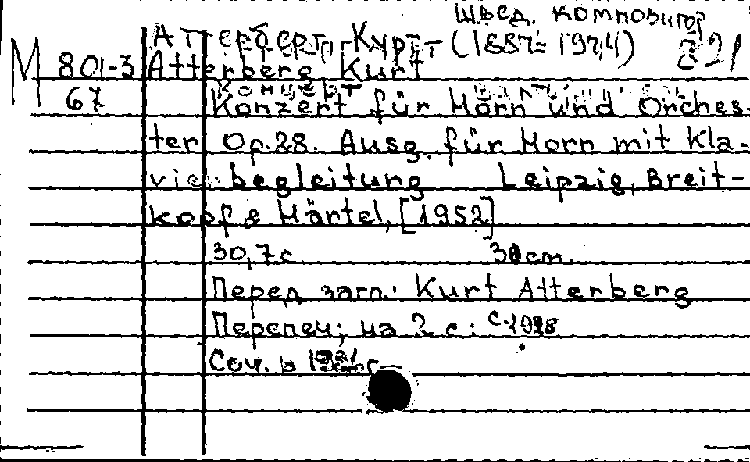 швед. композитор
Аттерберг, Курт (1887-1974)
М 801-3 Atterberg Kurt
67 Концерт
Konzert für Horn und Orches-
ter Op.28. Ausg. für Horn mit Kla-
vierbegleitung Leipzig, Breit-
kopf & Härtel, [1952]
30,7 с 30 cm.
Перед загл.: Kurt Atterberg
Перепеч; на 2 с: с 1928
Соч. в